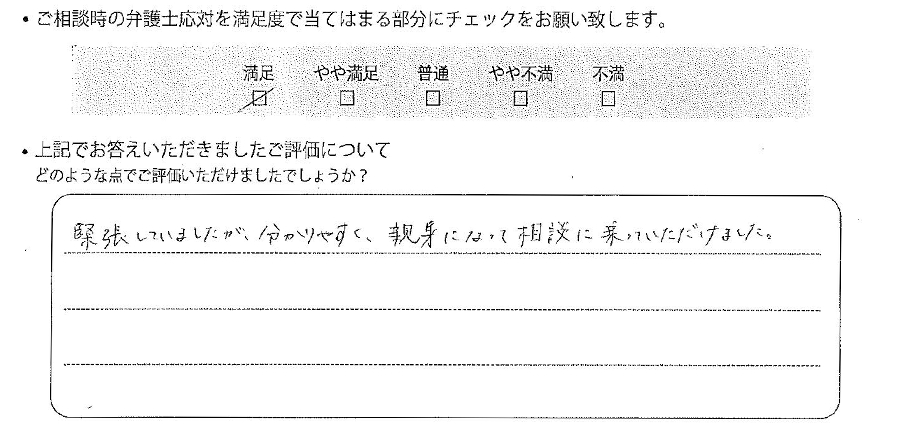 ・ご相談時の弁護士応対を満足度で当てはまる部分にチェックをお願い致します。
満足 やや満足 普通 やや不満 不満
☑ □ □ □ □
・上記でお答えいただきましたご評価について
どのような点でご評価いただけましたでしょうか?
緊張していましたが、分かりやすく、親身になって相談に乗っていただけました。